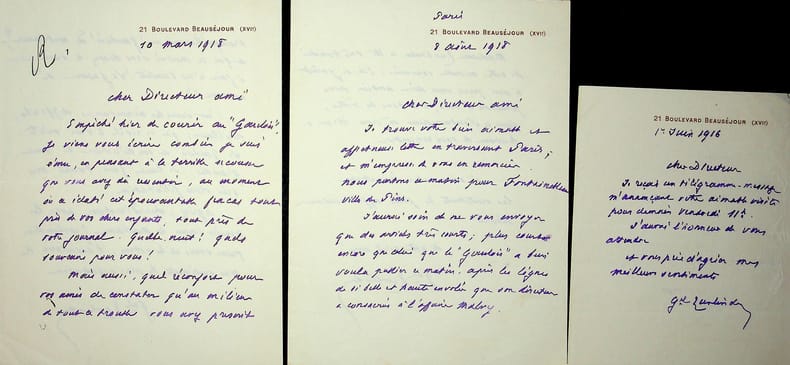 21 BOULEVARD BEAUSÉJOUR (XVIᵉ)
10 mars 1918
cher Directeur ami
Empêché hier de courir au "Gaulois"
Je viens vous écrire combien je suis
ému, en pensant à la terrible secousse
que vous avez dû ressentir, au moment
où a éclaté cet épouvantable fracas tout
près de vos chers enfants, tout près de
votre journal. Quelle nuit! quels
pour vous!
Mais aussi, quel réconfort pour
vos amis de constater qu'au milieu
de tout ce trouble vous avez
Paris
21 BOULEVARD BEAUSÉJOUR (XVIᵉ)
8 août 1918
cher Directeur ami
Je trouve votre bien aimable et
affectueuse lettre en traversant Paris;
et m'empresse de vous en remercier
nous partons ce matin pour Fontainebleau
J'aurai soin de ne vous envoyer
que des articles très courts; plus courts
encore que celui que le "Gaulois" a bien
voulu publier ce matin, après les lignes
de si belle et haute envolée que son directeur
a consacrées à l'affaire Malvy.
21 BOULEVARD BEAUSÉJOUR (XVIᵉ)
1er Juin 1916
cher Directeur
Je reçois un télégramme-message
m'annonçant votre aimable visite
pour demain vendredi
J'aurai l'honneur de vous
attendre
et vous prie d'agréer mes
meilleurs sentiments
Gal Zurlinden